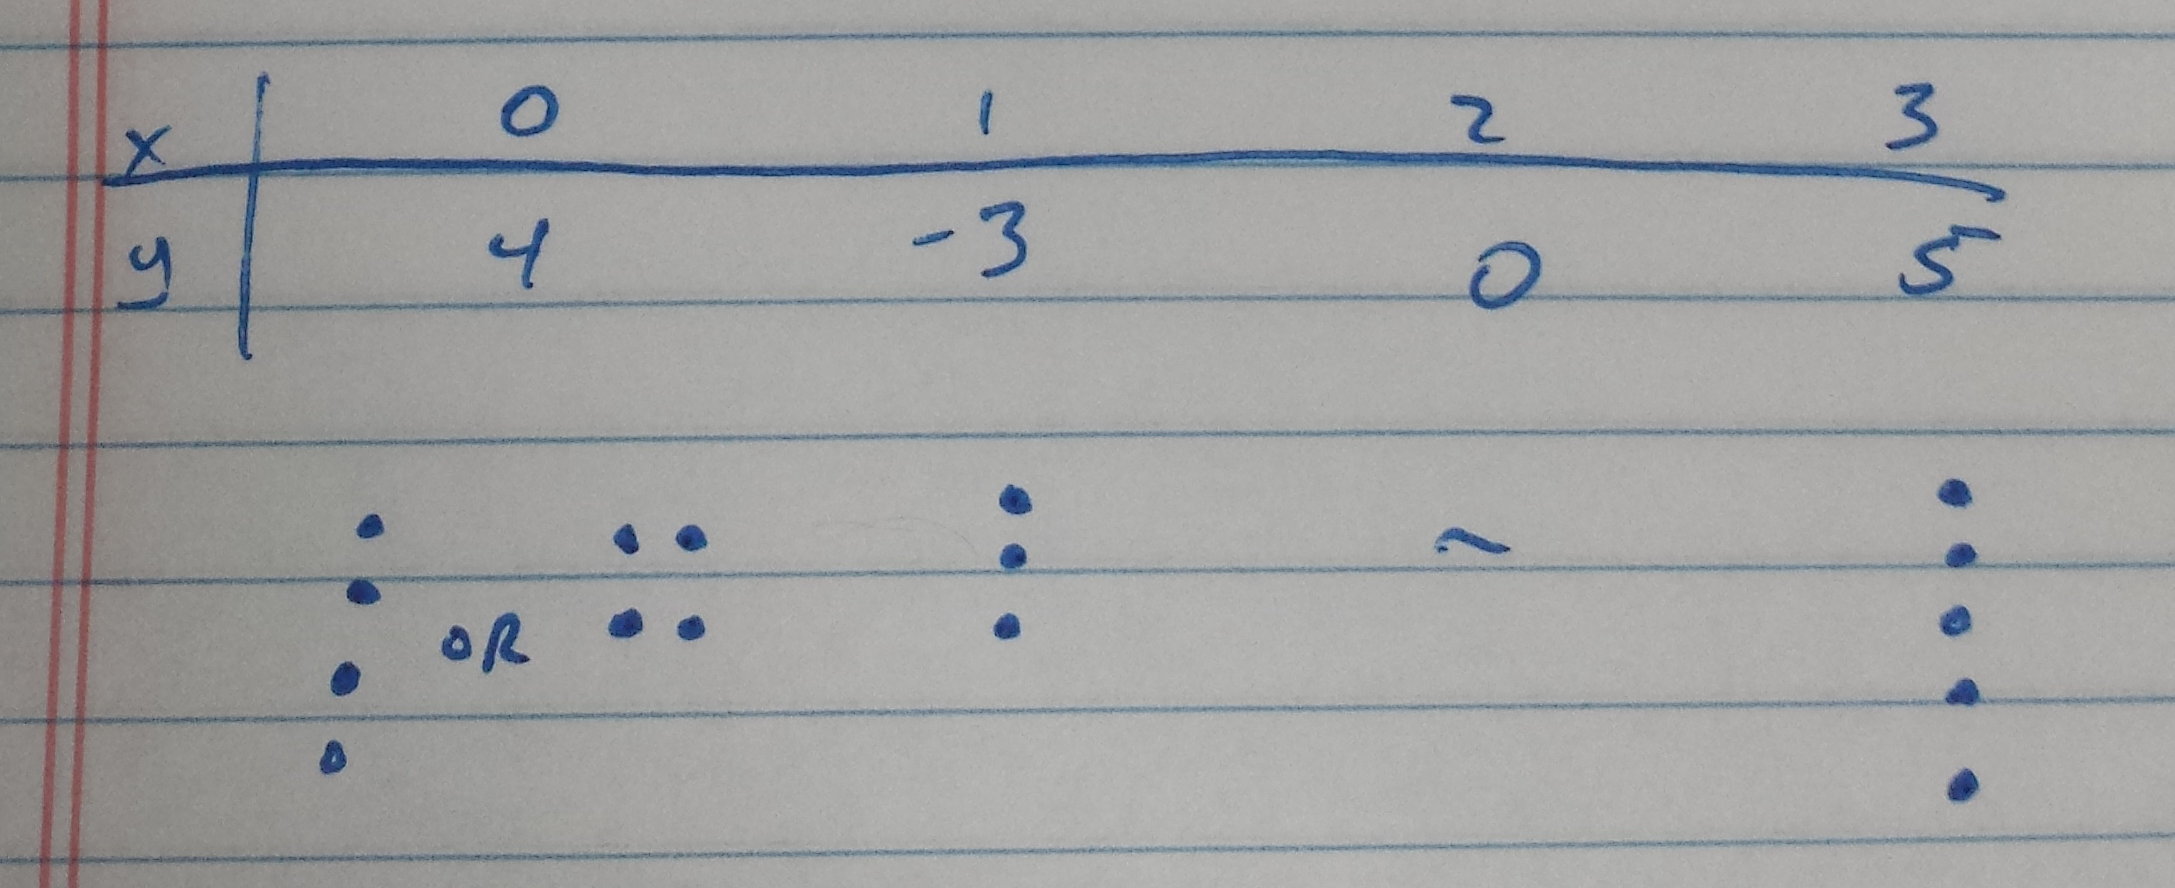 x 0 1 2 3
y 4 -3 0 5
OR
~